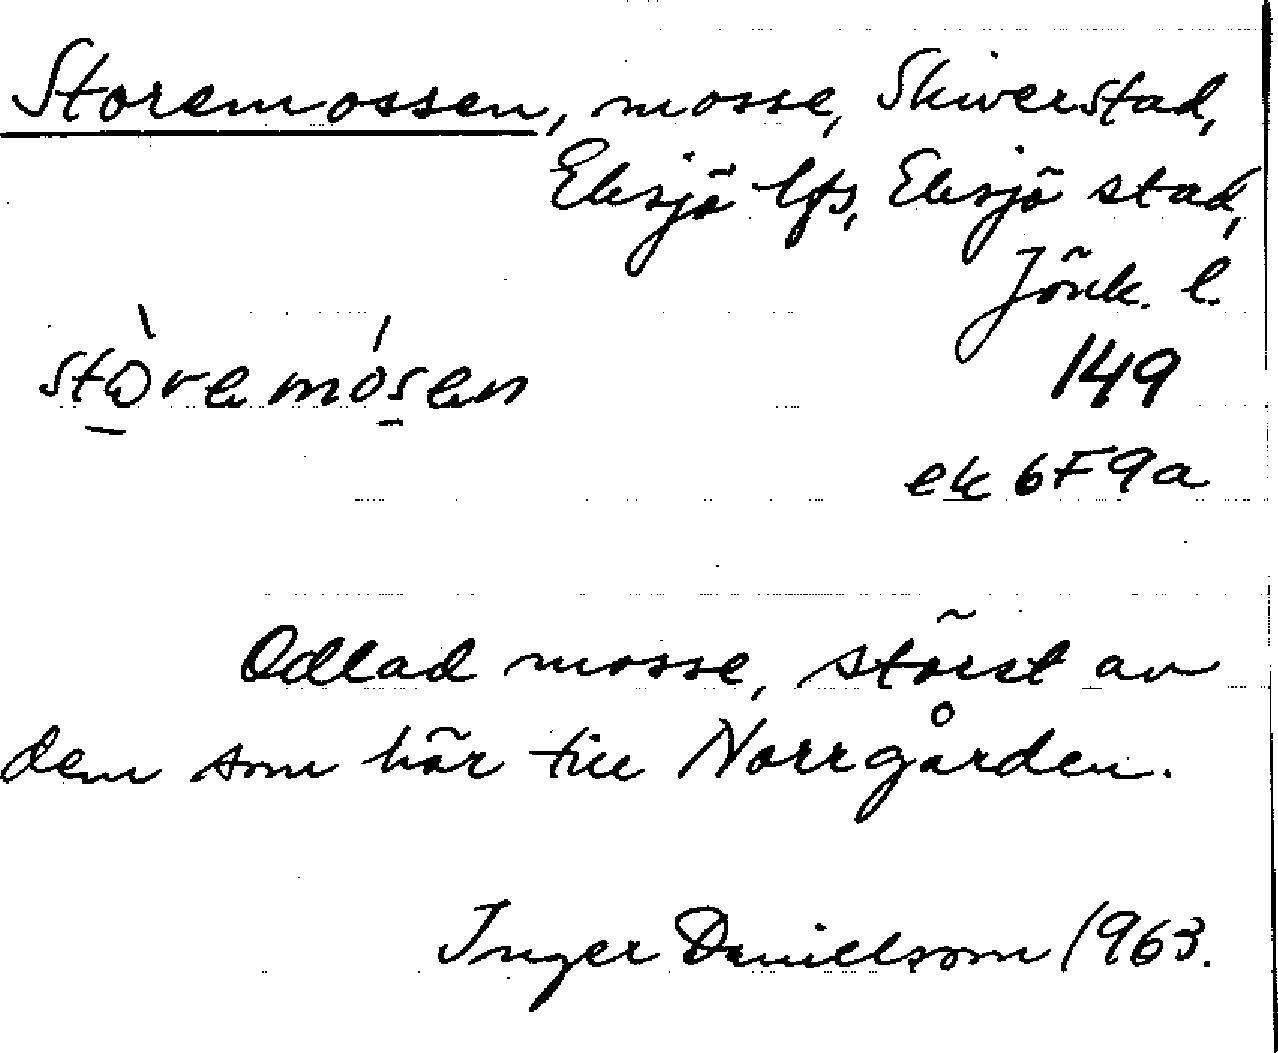 Storemossen, mosse, Skiverstad,
Eksjö lfs, Eksjö stad,
Jönk. l.
149
stòremósen
ek 6F9a
Odlad mosse, störst av
dem som hör till Norrgården.
Inger Danielsson 1963.